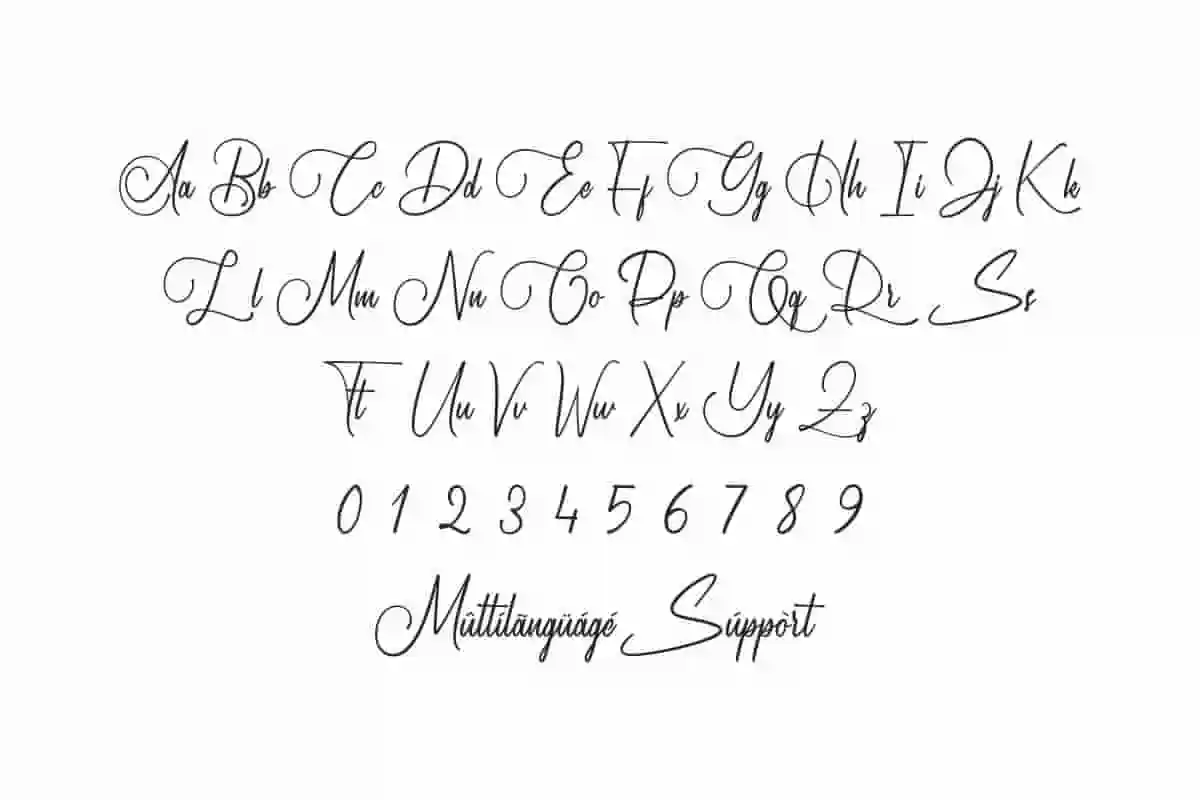 Aa Bb Cc Dd Ee Ff Gg Hh Ii Jj Kk
Ll Mm Nn Oo Pp Qq Rr Ss
Tt Uu Vv Ww Xx Yy Zz
0 1 2 3 4 5 6 7 8 9
Mûttílãngüágé Súppòrt